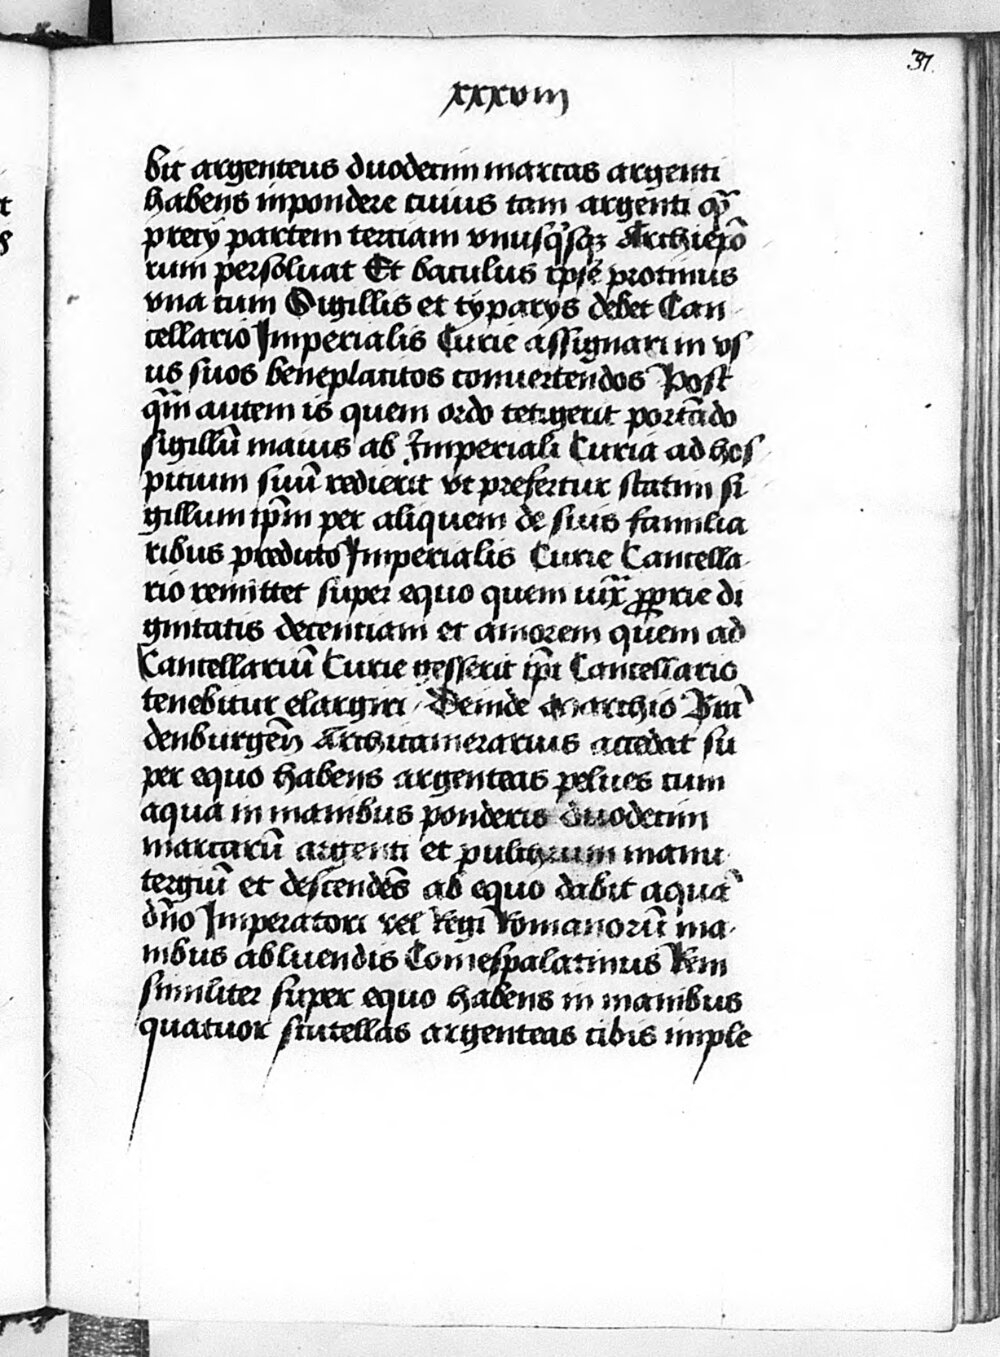 37.
xxxviii
bit argenteus duodecim marcas argenti
habens in pondere cuius tam argenti q̃
precij partem terciam vnusq̃sq3 Archiepō
rum persoluat Et baculus ipse protinus
vna cum Sigillis et typarijs debet Can
cellario Imperialis Curie assignari in vs
us suos beneplacitos conuertendos Post
q̃m autem is quem ordo tetigerit portādo
sigillū maius ab Imperiali Curia ad hos
pitium suū redierit vt prefertur statim si
gillum ip̄m per aliquem de suis familia
ribus predicto Imperialis Curie Cancella
rio remittet super equo quem iux̃ p̱prie di
gnitatis decentiam et amorem quem ad
Cancellariū Curie gesserit ip̄i Cancellario
tenebitur elargiri Deinde Marchio Brā
denburgen̄ Archicamerarius accedat su
per equo habens argenteas pelues cum
aqua in manibus ponderis duodecim
marcarū argenti et pulchrum manu
tergiū et descendēs ab equo dabit aquā
dn̄o Imperatori vel Regi Romanorū ma
nibus abluendis Comespalatinus Ren̄
similiter super equo habens in manibus
quatuor scutellas argenteas cibis imple